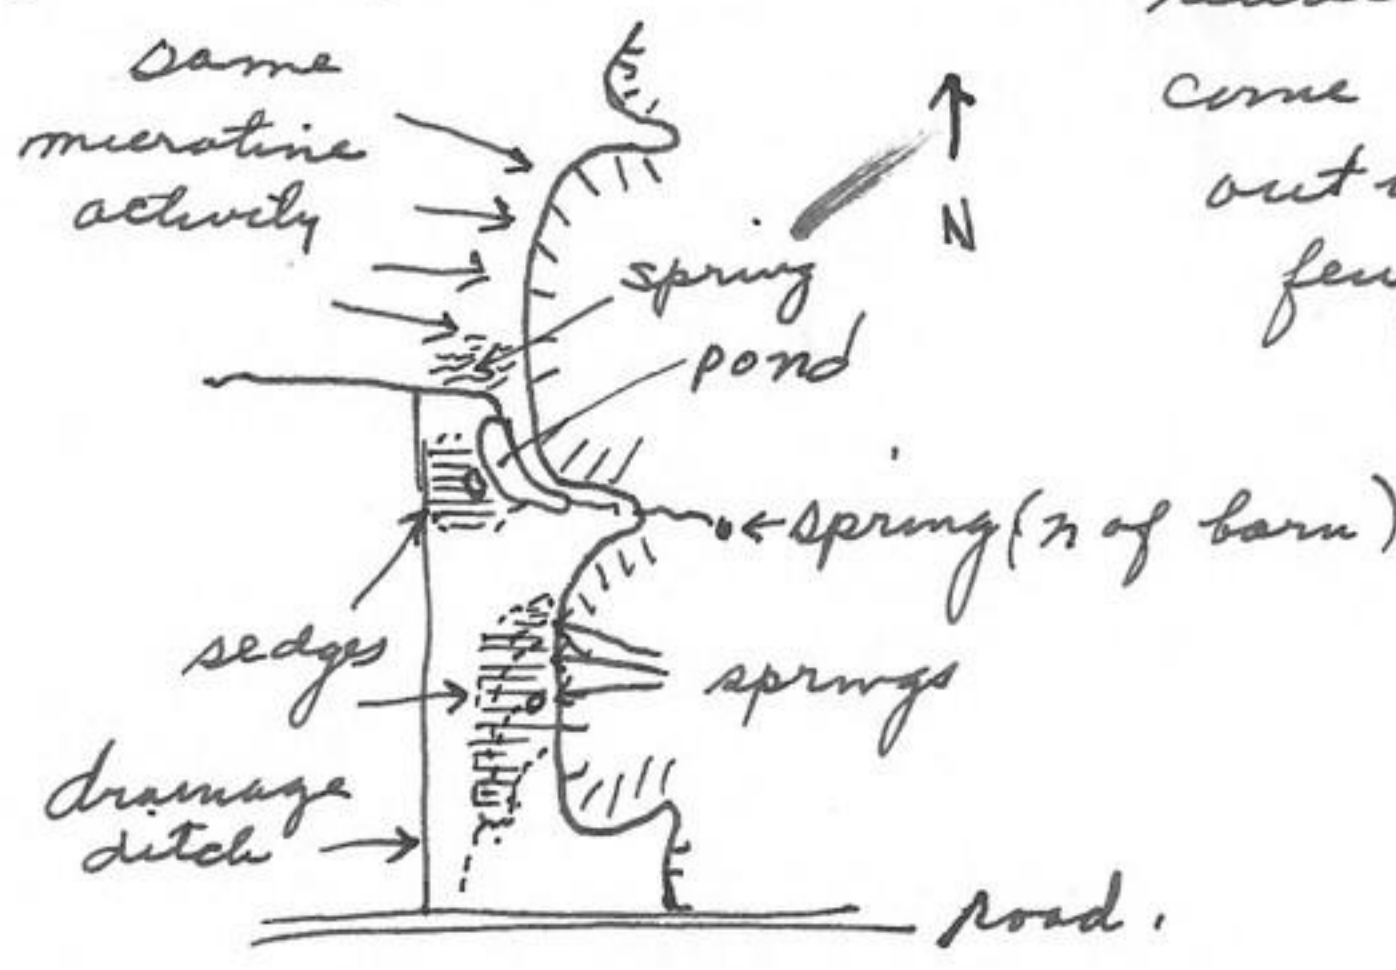 some
microtine
activity
come
out
N
spring
pond
spring (n of barn)
sedges
springs
drainage
ditch
road.